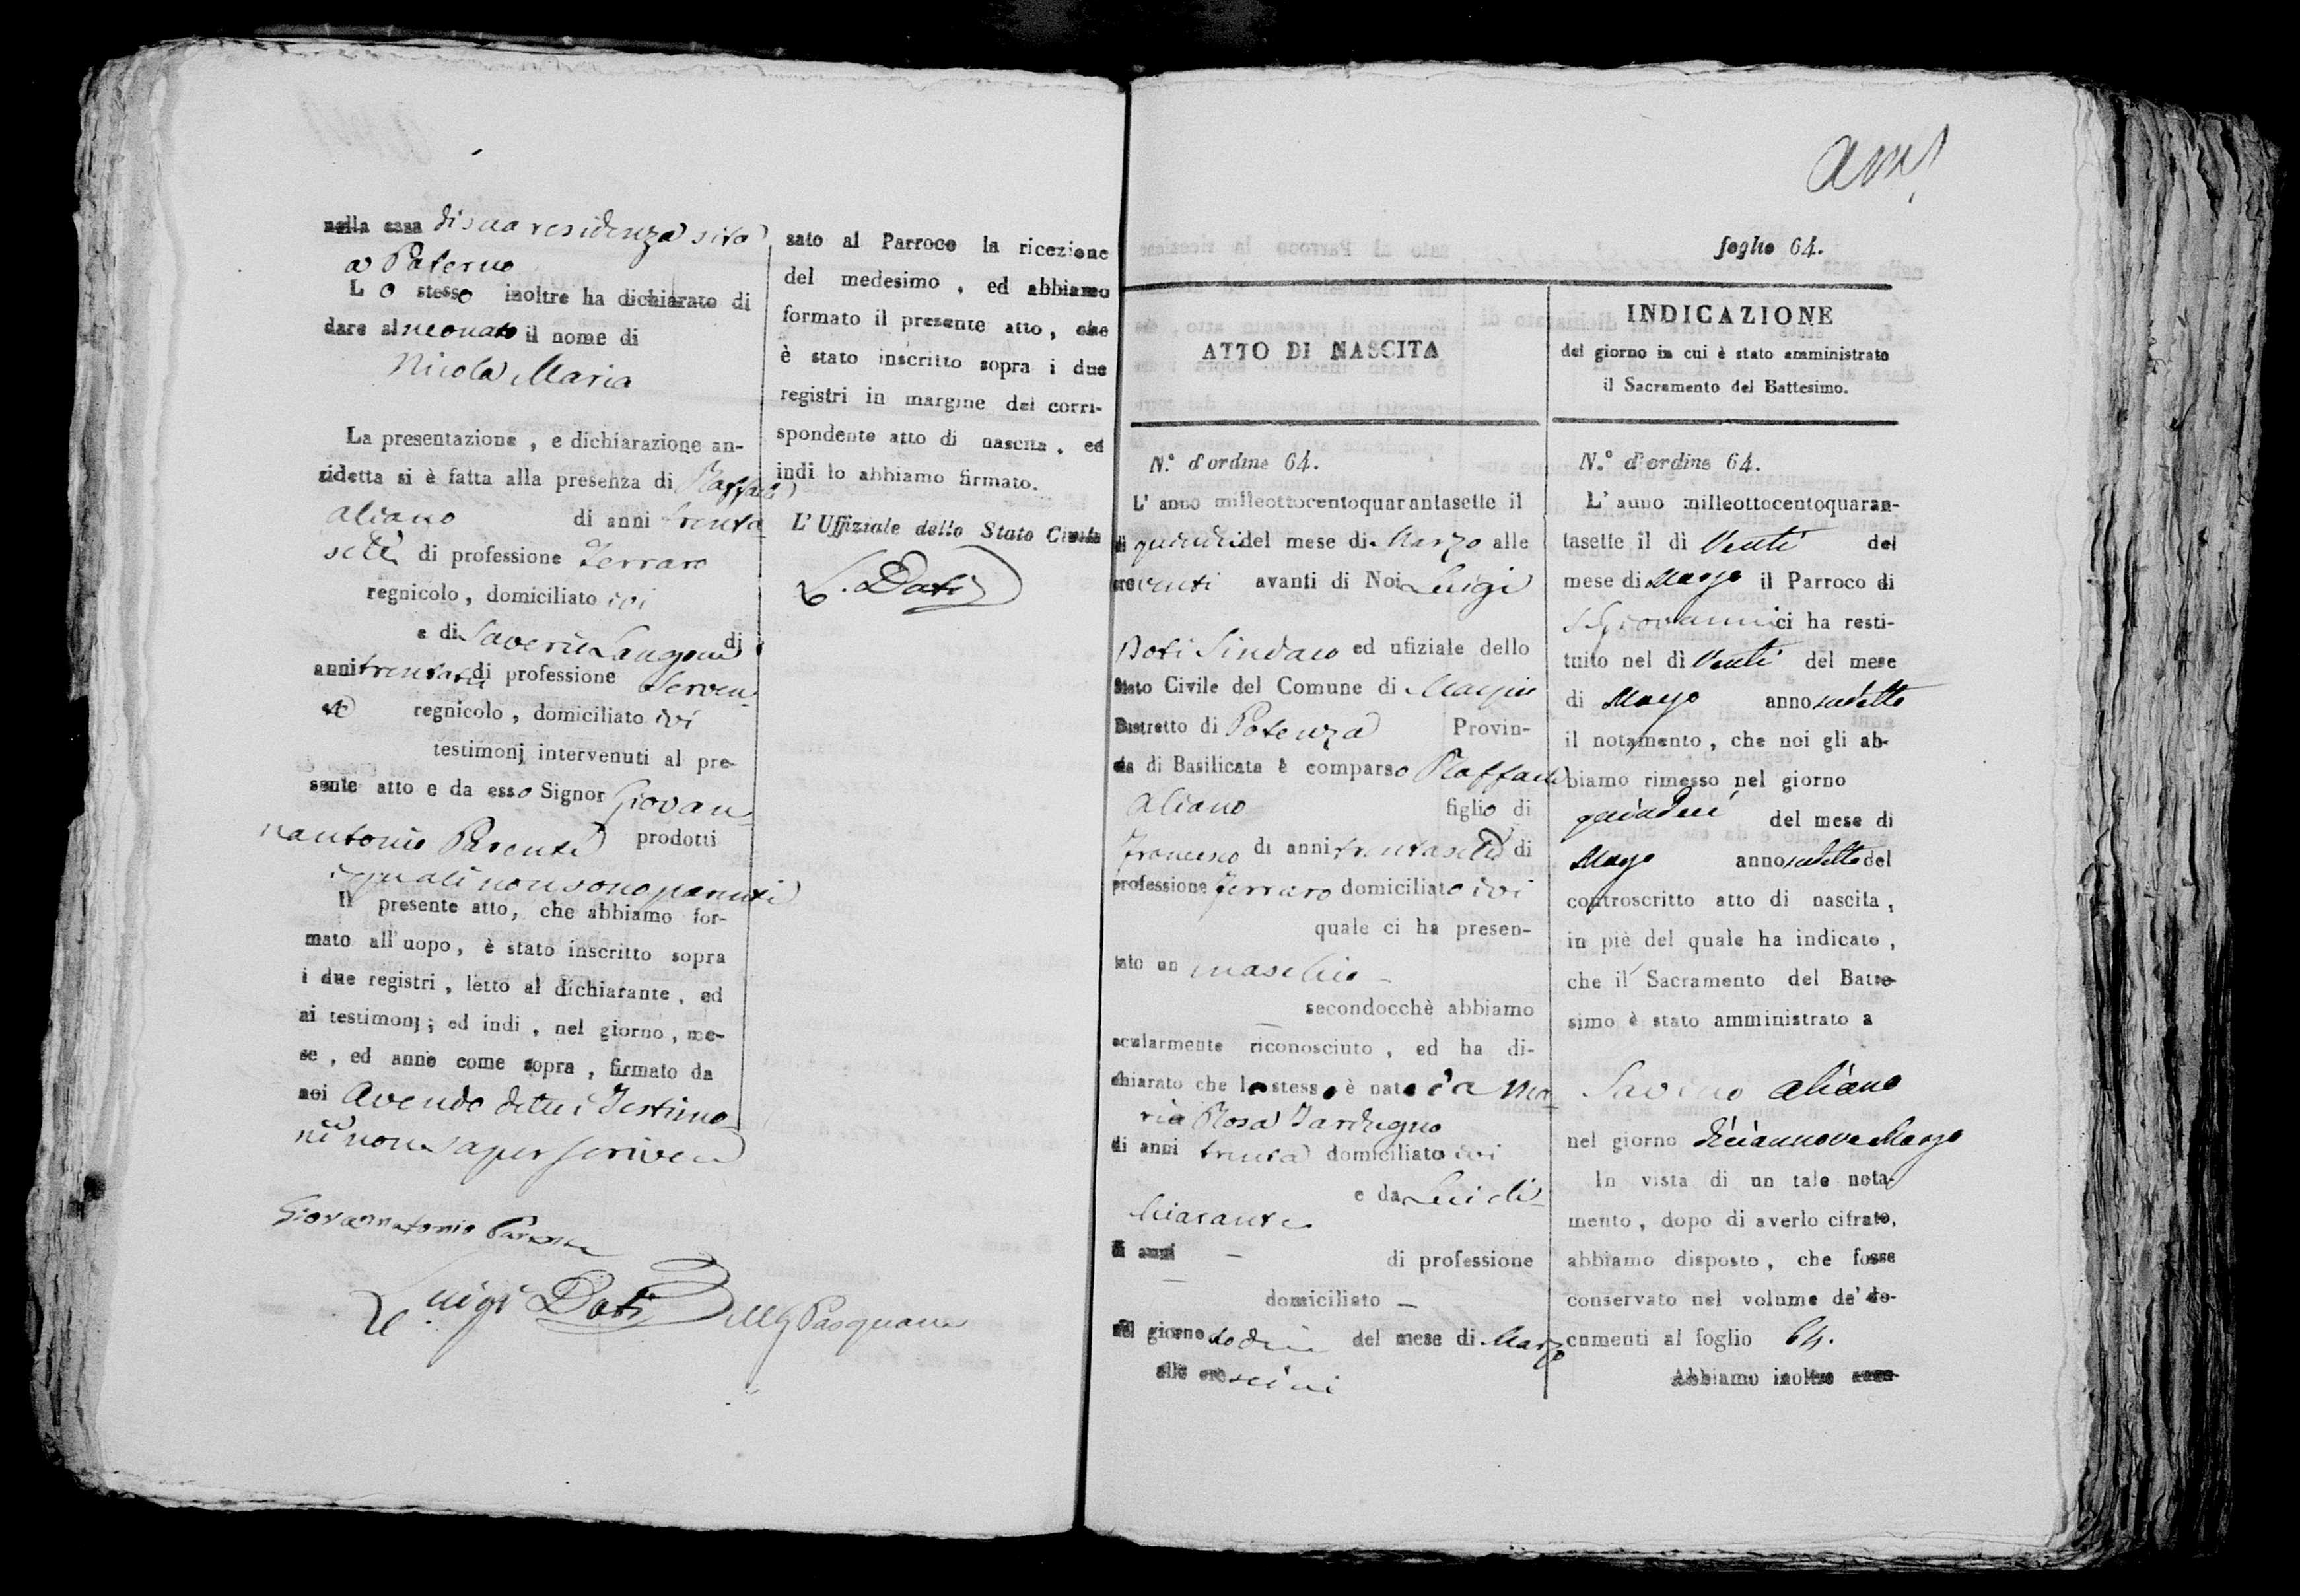 nella casa di sua residenza sita
a Paterno
Lo stesso inoltre ha dichiarato di
dare al neonato il nome di
Nicola Maria
La presentazione, e dichiarazione an-
zidetta si è fatta alla presenza di Raffaele
Aliano di anni trenta
sette di professione Ferraro
regnicolo, domiciliato ivi
e di Saverio Langone di
anni di professione Serven-
te regnicolo, domiciliato ivi
testimonj intervenuti al pre-
sente atto e da esso Signor Giovan
nantonio Parente prodotti
i quali non sono parenti
Il presente atto, che abbiamo for-
mato all'uopo, è stato inscritto sopra
i due registri, letto al dichiarante, ed
ai testimonj; ed indi, nel giorno, me-
se, ed anno come sopra, firmato da
noi Avendo detto i Testimo
nii non saper scrivere
Giovannantonio Parente
Luigi Doti Pasquarie
sato al Parroco la ricezione
del medesimo, ed abbiamo
formato il presente atto, che
è stato inscritto sopra i due
registri in margine del corri-
spondente atto di nascita, ed
indi lo abbiamo firmato.
L'Uffiziale dello Stato Civile
L. Doti
foglio 64.
ATTO DI NASCITA
N.° d'ordine 64.
L'anno milleottocentoquarantasette il
dì quindici del mese di Marzo alle
ore venti avanti di Noi Luigi
Doti Sindaco ed ufiziale dello
Stato Civile del Comune di
Distretto di Potenza Provin-
cia di Basilicata è comparso Raffaele
Aliano figlio di
Francesco di anni trentasette di
professione Ferraro domiciliato ivi
quale ci ha presen-
tato un maschio
secondocchè abbiamo
ocularmente riconosciuto, ed ha di-
chiarato che lo stesso è nato da Ma-
ria Rosa Tardugno
di anni trenta domiciliato ivi
e da Lui di-
chiarante
di anni — di professione
—
domiciliato —
nel giorno sodini del mese di Marzo
alle ore
INDICAZIONE
del giorno in cui è stato amministrato
il Sacramento del Battesimo.
N.° d'ordine 64.
L'anno milleottocentoquaran-
tasette il dì Venti del
mese di Marzo il Parroco di
S. Giovanni ci ha resti-
tuito nel dì Venti del mese
di Marzo anno sudetto
il notamento, che noi gli ab-
biamo rimesso nel giorno
quindici del mese di
Marzo anno sudetto del
controscritto atto di nascita,
in piè del quale ha indicato,
che il Sacramento del Batte-
simo è stato amministrato a
Savino Aliano
nel giorno diciannove Marzo
In vista di un tale nota-
mento, dopo di averlo cifrato,
abbiamo disposto, che fosse
conservato nel volume de' do-
cumenti al foglio 64.
Abbiamo inoltre accu-